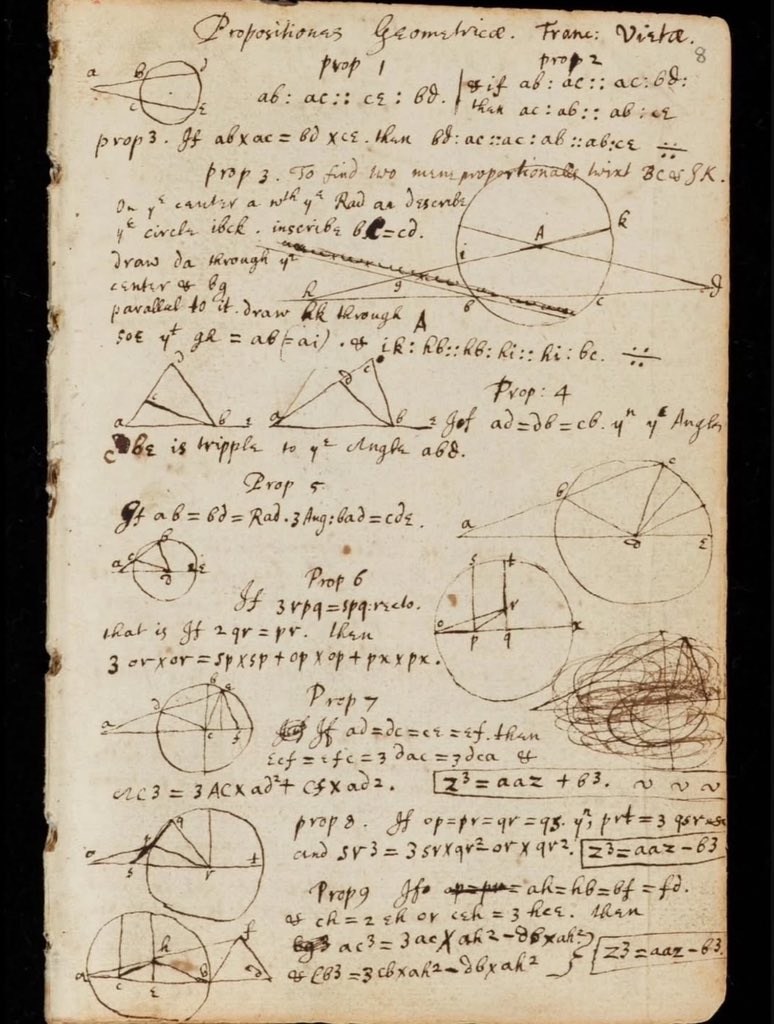 Propositiones Geometricæ. Franc: Vietæ.
8
prop 1
ab: ac:: cε: bd.
prop 2
& if ab: ac:: ac: bd:
then ac: ab:: ab: cε
prop 3. If ab×ac = bd×cε. then bd: ac::ac: ab::ab:cε ∺
prop 3. To find two meane proportionalls twixt BC & IK.
On yᵉ center a wᵗʰ yᵉ Rad ab describe
yᵉ circle ibck. inscribe bc=cd.
draw da through yᵉ
center & bg
parallel to it. draw hk through A
soe yᵗ gh = ab(=ai). & ik: hb::hb: hi:: hi: bc. ∺
Prop: 4
If ad=db=cb. yⁿ yᵉ Angle
cbε is tripple to yᵉ Angle abd.
Prop 5
If ab=bd=Rad. 3Ang:bad=cdε.
Prop 6
If 3rpq=spq:recto.
that is If 2qr=pr. then
3or×or=sp×sp+op×op+px×px.
Prop 7
If ad=dc=cε=εf. then
εcf=εfc=3dac=3dca &
AC3=3AC×ad²+Cf×ad2.
z³=aaz+b³.
prop 8. If op=pr=qr=qs. yⁿ, prt=3qsr
and sr3=3sr×qr²-or×qr².
z³=aaz-b³
Prop 9 If ah=hb=bf=fd.
& ch=2εh or cεh=3hcε. then
ac³=3ac×ah²-db×ah²
& cb³=3cb×ah²-db×ah²
z³=aaz-b³.